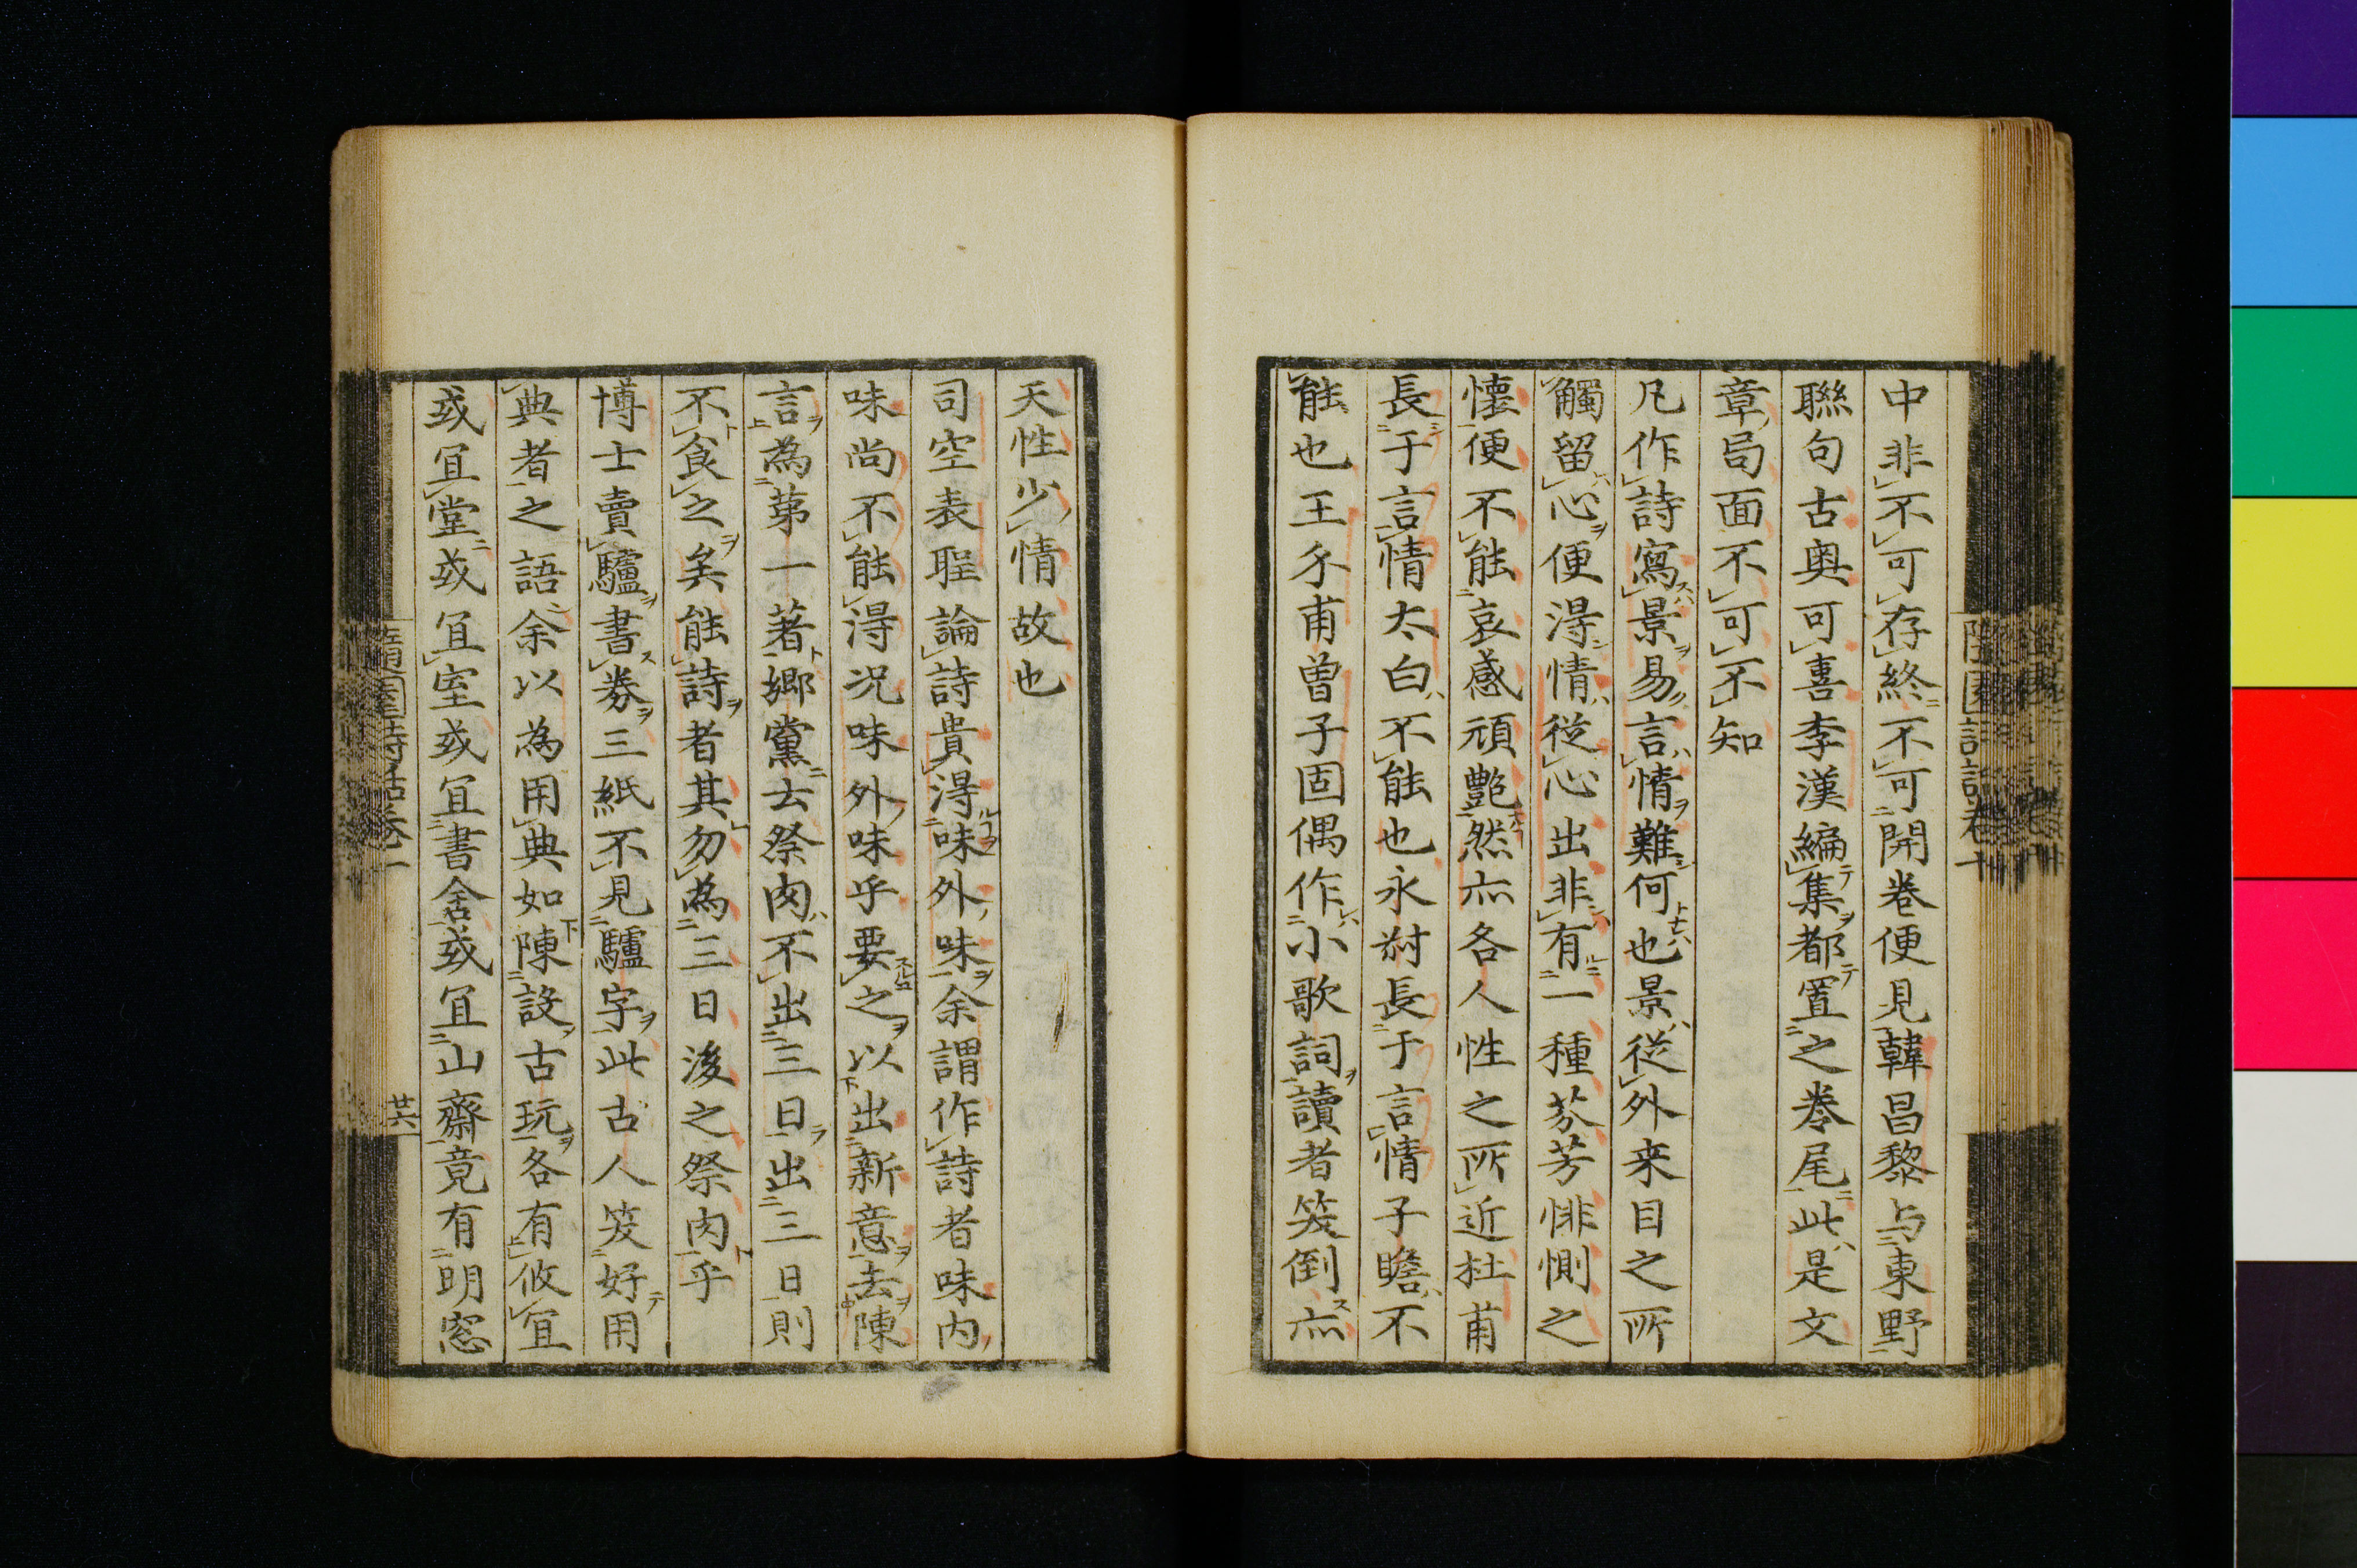 中非不可存終不可開卷便見韓昌黎与東野
聯句古奥可喜李漢編集都置之巻尾此是文
章局面不可不知
凡作詩寫景易言情難何也景從外来目之所
觸留心便得情從心出非有一種芬芳悱惻之
懐便不能哀感頑艶然亦各人性之所近杜甫
長于言情太白不能也永叔長于言情子瞻不
能也王介甫曽子固偶作小歌詞讀者笑倒亦
天性少情故也
司空表聖論詩貴得味外味余謂作詩者味内
味尚不能得况味外味乎要之以出新意去陳
言為第一著郷黨云祭肉不出三日出三日則
不食之矣能詩者其勿為三日後之祭肉乎
博士賣驢書券三紙不見驢字此古人笑好用
典者之語余以為用典如陳設古玩各有攸宜
或宜堂或宜室或宜書舍或宜山齋竟有明窓
隨園詩話卷一
廿六